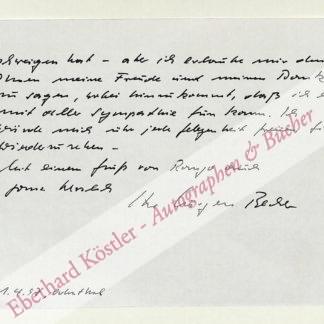 schweigen hat – aber ich erlaube mir den
Ihnen meine Freude und meinen Dank
zu sagen, wobei hinzukommt, daß ich e
mit aller Sympathie tun kann. Ich
würde mich über jede Gelegenheit freuen, Si
wiederzusehen.
Mit einem Gruß von
Ihr Jürgen Becker
1.4.97
Eberhard Köstler - Autographen & Bücher